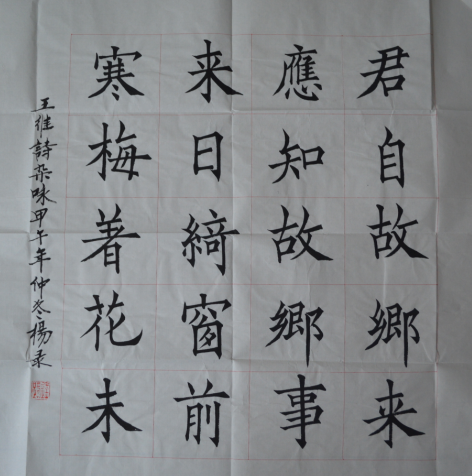 君自故鄉来
應知故鄉事
来日綺窗前
寒梅着花未
王維詩杂咏甲午年仲冬楊录